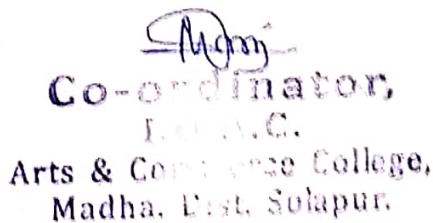 Co-ordinator,
I.Q.A.C.
Arts & Commerce College,
Madha. Dist. Solapur.